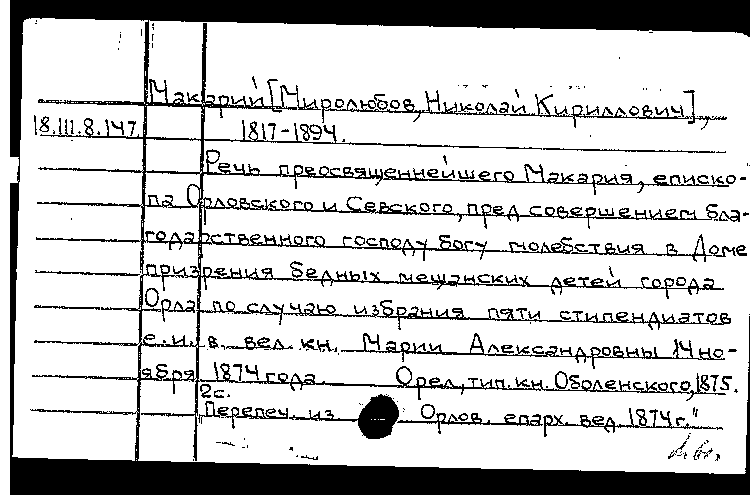 Макарий [Миролюбов, Николай Кириллович],
18.III.8.147 1817-1894.
Речь преосвященнейшего Макария, еписко-
па Орловского и Севского, пред совершением бла-
годарственного господу богу молебствия в Доме
призрения бедных мещанских детей города
Орла по случаю избрания пяти стипендиатов
е.и.в. вел. кн. Марии Александровны 14 но-
ября 1874 года. Орел, тип. кн. Оболенского, 1875.
2с.
"Перепеч. из Орлов. епарх. вед. 1874 г."